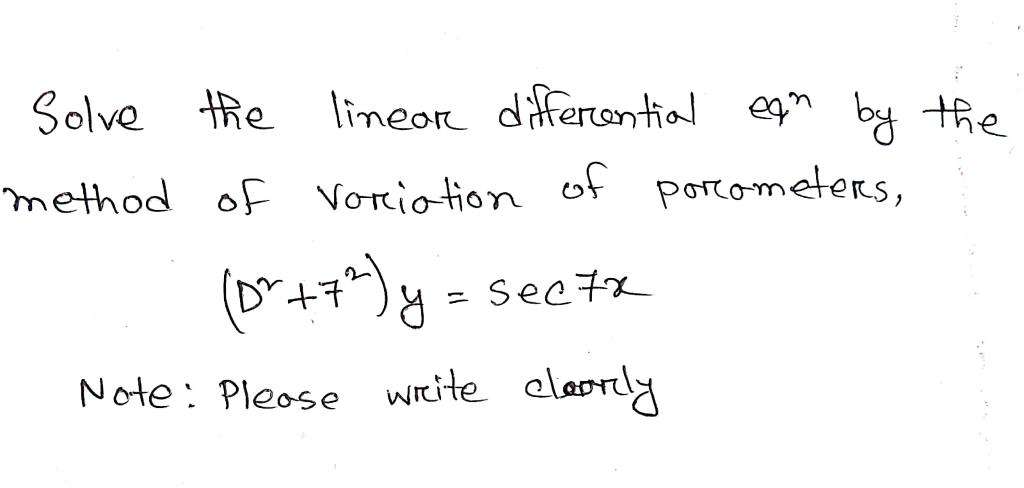 Solve the linear differential eqn by the
method of variation of parameters,
(D²+7²)y = sec7x
Note: Please write clearly